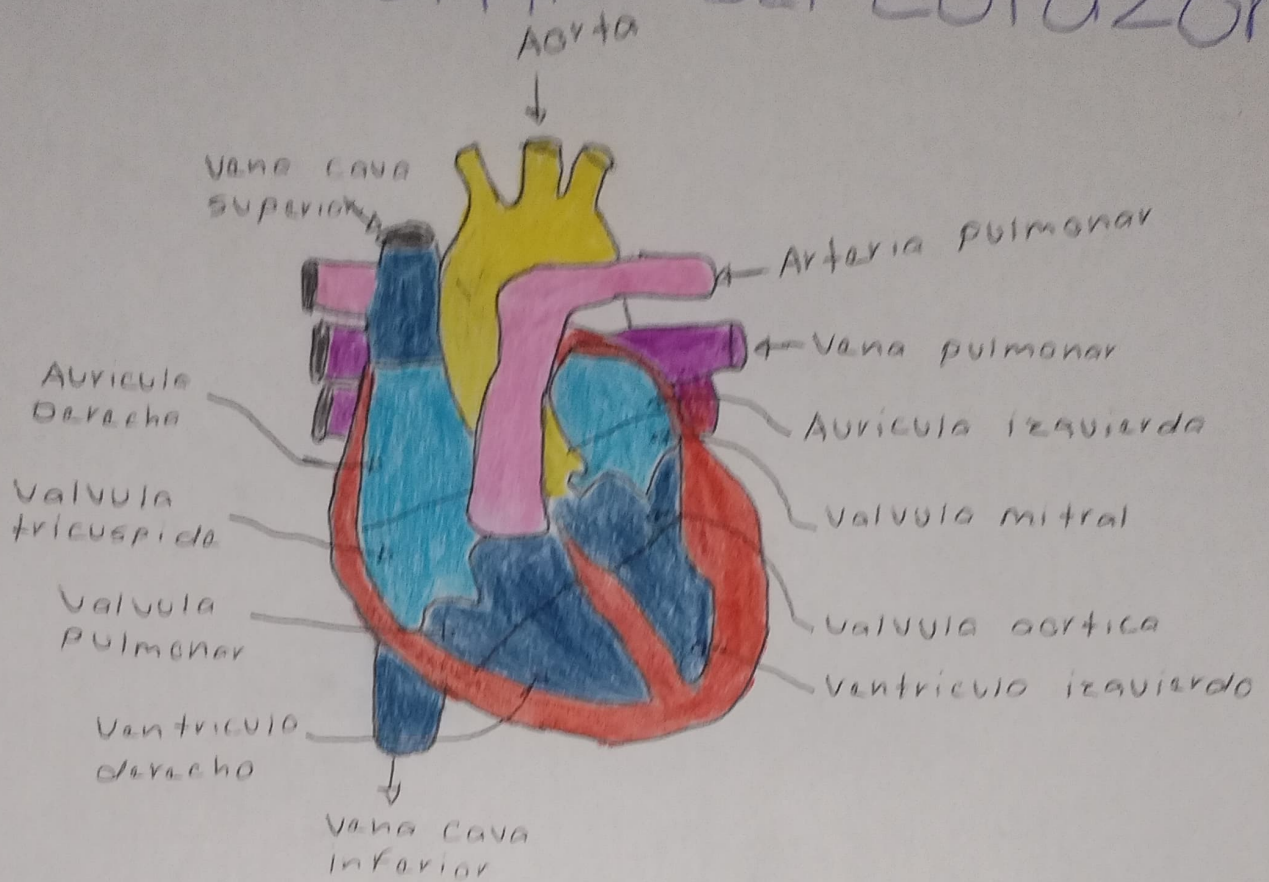 corazon
Aorta
Vena cava
superior
Arteria pulmonar
Vena pulmonar
Auricula
Derecha
Auricula izquierda
Valvula
tricuspide
Valvula mitral
Valvula
pulmonar
Valvula aortica
Ventriculo izquierdo
Ventriculo
derecho
Vena cava
inferior